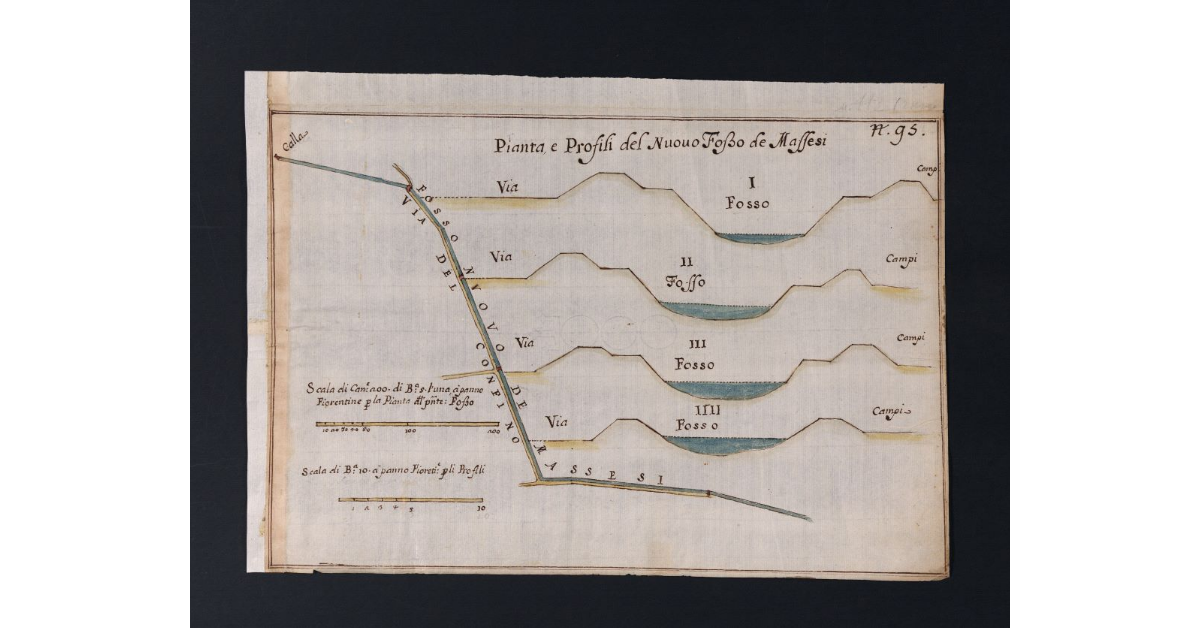 N. 95.
Pianta, e Profili del Nuouo Foßo de Maſſesi
Calla
I
Fosso
Via
Camp
II
Foſſo
Via
Campi
III
Fosso
Via
Campi
IIII
Fosso
Via
Campi
FOSSO NVOVO DE MASSESI
VIA DEL CONFINO
Scala di Can.e 200. di B.a 5. l'una, a panno
Fiorentine p la Pianta del pnte: Foſſo
10 20 30 40 50 100 200
Scala di B.a 10. a panno Fioret.e p li Profili
1 2 3 4 5 10